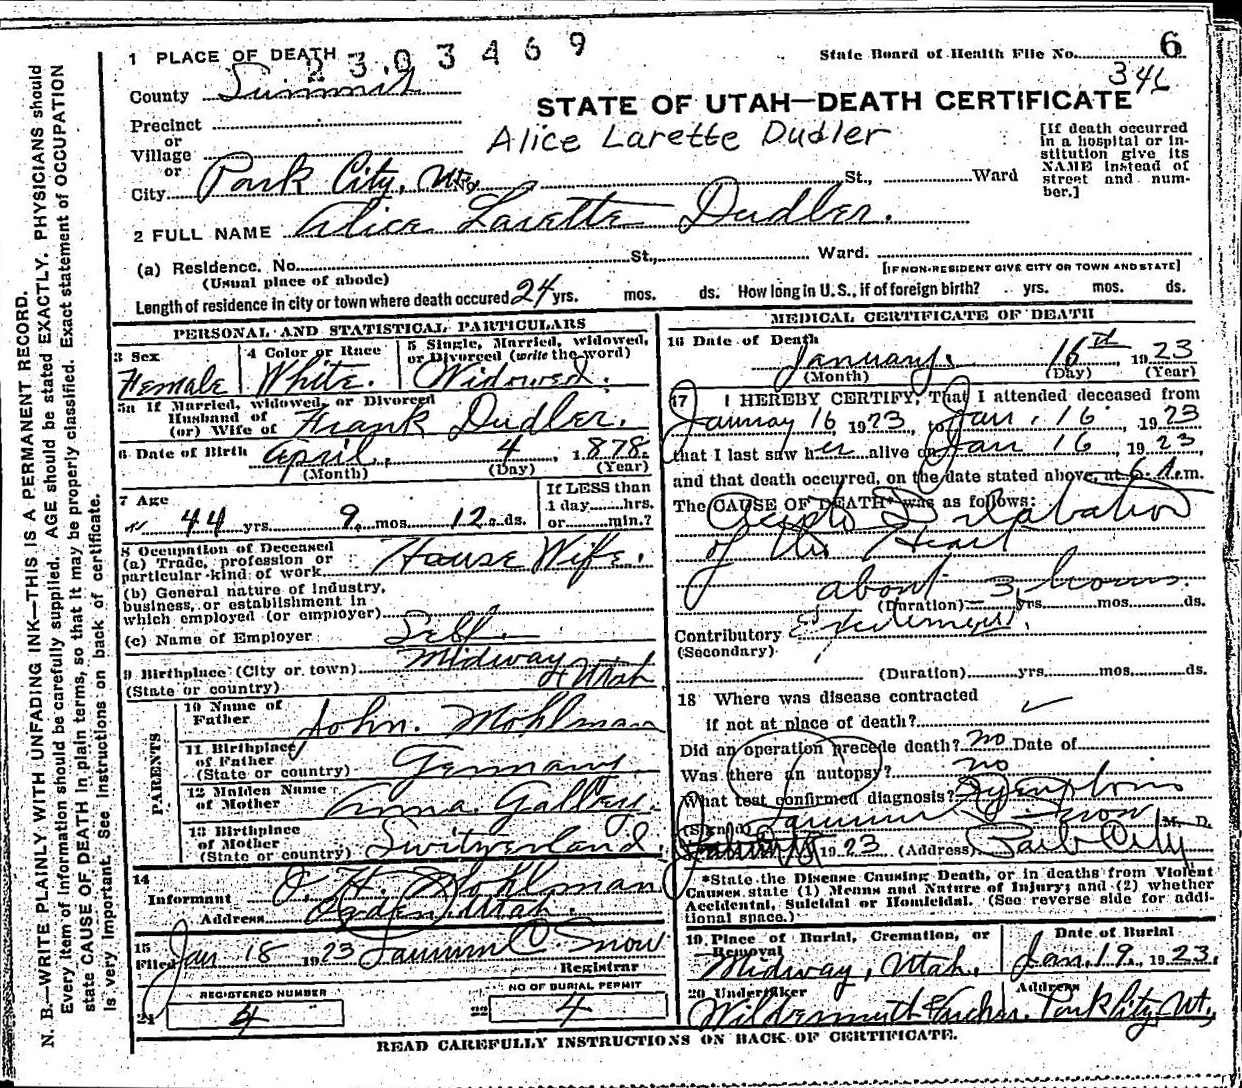 N. B.—WRITE PLAINLY WITH UNFADING INK—THIS IS A PERMANENT RECORD.
Every item of information should be carefully supplied. AGE should be stated EXACTLY. PHYSICIANS should
state CAUSE OF DEATH in plain terms, so that it may be properly classified. Exact statement of OCCUPATION
is very important. See instructions on back of certificate.
1 PLACE OF DEATH
2303469
State Board of Health File No. 6
346
County Summit
STATE OF UTAH—DEATH CERTIFICATE
Precinct
or
Village
or
City Park City, St., Ward
Alice Larette Dudler
[If death occurred
in a hospital or in-
stitution give its
NAME instead of
street and num-
ber.]
2 FULL NAME Alice Larette Dudler.
(a) Residence. No. St., Ward.
(Usual place of abode)
[IF NON-RESIDENT GIVE CITY OR TOWN AND STATE]
Length of residence in city or town where death occured 24 yrs. mos. ds. How long in U.S., if of foreign birth? yrs. mos. ds.
PERSONAL AND STATISTICAL PARTICULARS
3 Sex
Female
4 Color or Race
White.
5 Single, Married, widowed,
or Divorced (write the word)
Widowed.
5a If Married, widowed, or Divorced
Husband of
(or) Wife of Frank Dudler.
6 Date of Birth April 4, 1878.
(Month) (Day) (Year)
7 Age
44 yrs. 9 mos. 12 ds.
If LESS than
1 day hrs.
or min.?
8 Occupation of Deceased
(a) Trade, profession or
particular kind of work House Wife.
(b) General nature of industry,
business, or establishment in
which employed (or employer)
(c) Name of Employer Self
9 Birthplace (City or town) Midway
(State or country) Utah
PARENTS
10 Name of
Father John. Mohlman
11 Birthplace
of Father
(State or country) Germany.
12 Maiden Name
of Mother Anna
13 Birthplace
of Mother
(State or country) Switzerland.
14
Informant J. H. Mohlman
Address Ogden, Utah.
15
Filed Jan 18 1923 Snow
Registrar
REGISTERED NUMBER
21 4
NO OF BURIAL PERMIT
22 4
MEDICAL CERTIFICATE OF DEATH
16 Date of Death
January. 16th 1923
(Month) (Day) (Year)
17 I HEREBY CERTIFY, That I attended deceased from
January 16 1923, to Jan. 16 1923
that I last saw her alive on Jan 16, 1923,
and that death occurred, on the date stated above, at 6 A.m.
The CAUSE OF DEATH* was as follows:
Dilatation
of the Heart
about 3 hours.
(Duration) yrs. mos. ds.
Contributory Excitement.
(Secondary)
(Duration) yrs. mos. ds.
18 Where was disease contracted
if not at place of death?
Did an operation precede death? no Date of
Was there an autopsy? no
What test confirmed diagnosis? Symptoms
(Signed) Snow M. D.
1923 (Address) Park City
*State the Disease Causing Death, or in deaths from Violent
Causes, state (1) Means and Nature of Injury; and (2) whether
Accidental, Suicidal or Homicidal. (See reverse side for addi-
tional space.)
19 Place of Burial, Cremation, or
Removal
Midway, Utah.
Date of Burial
Jan. 19. 1923.
20 Undertaker
Address
Park City, Ut.,
READ CAREFULLY INSTRUCTIONS ON BACK OF CERTIFICATE.